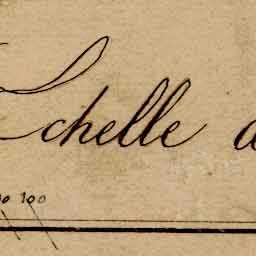 Echelle d
00 100